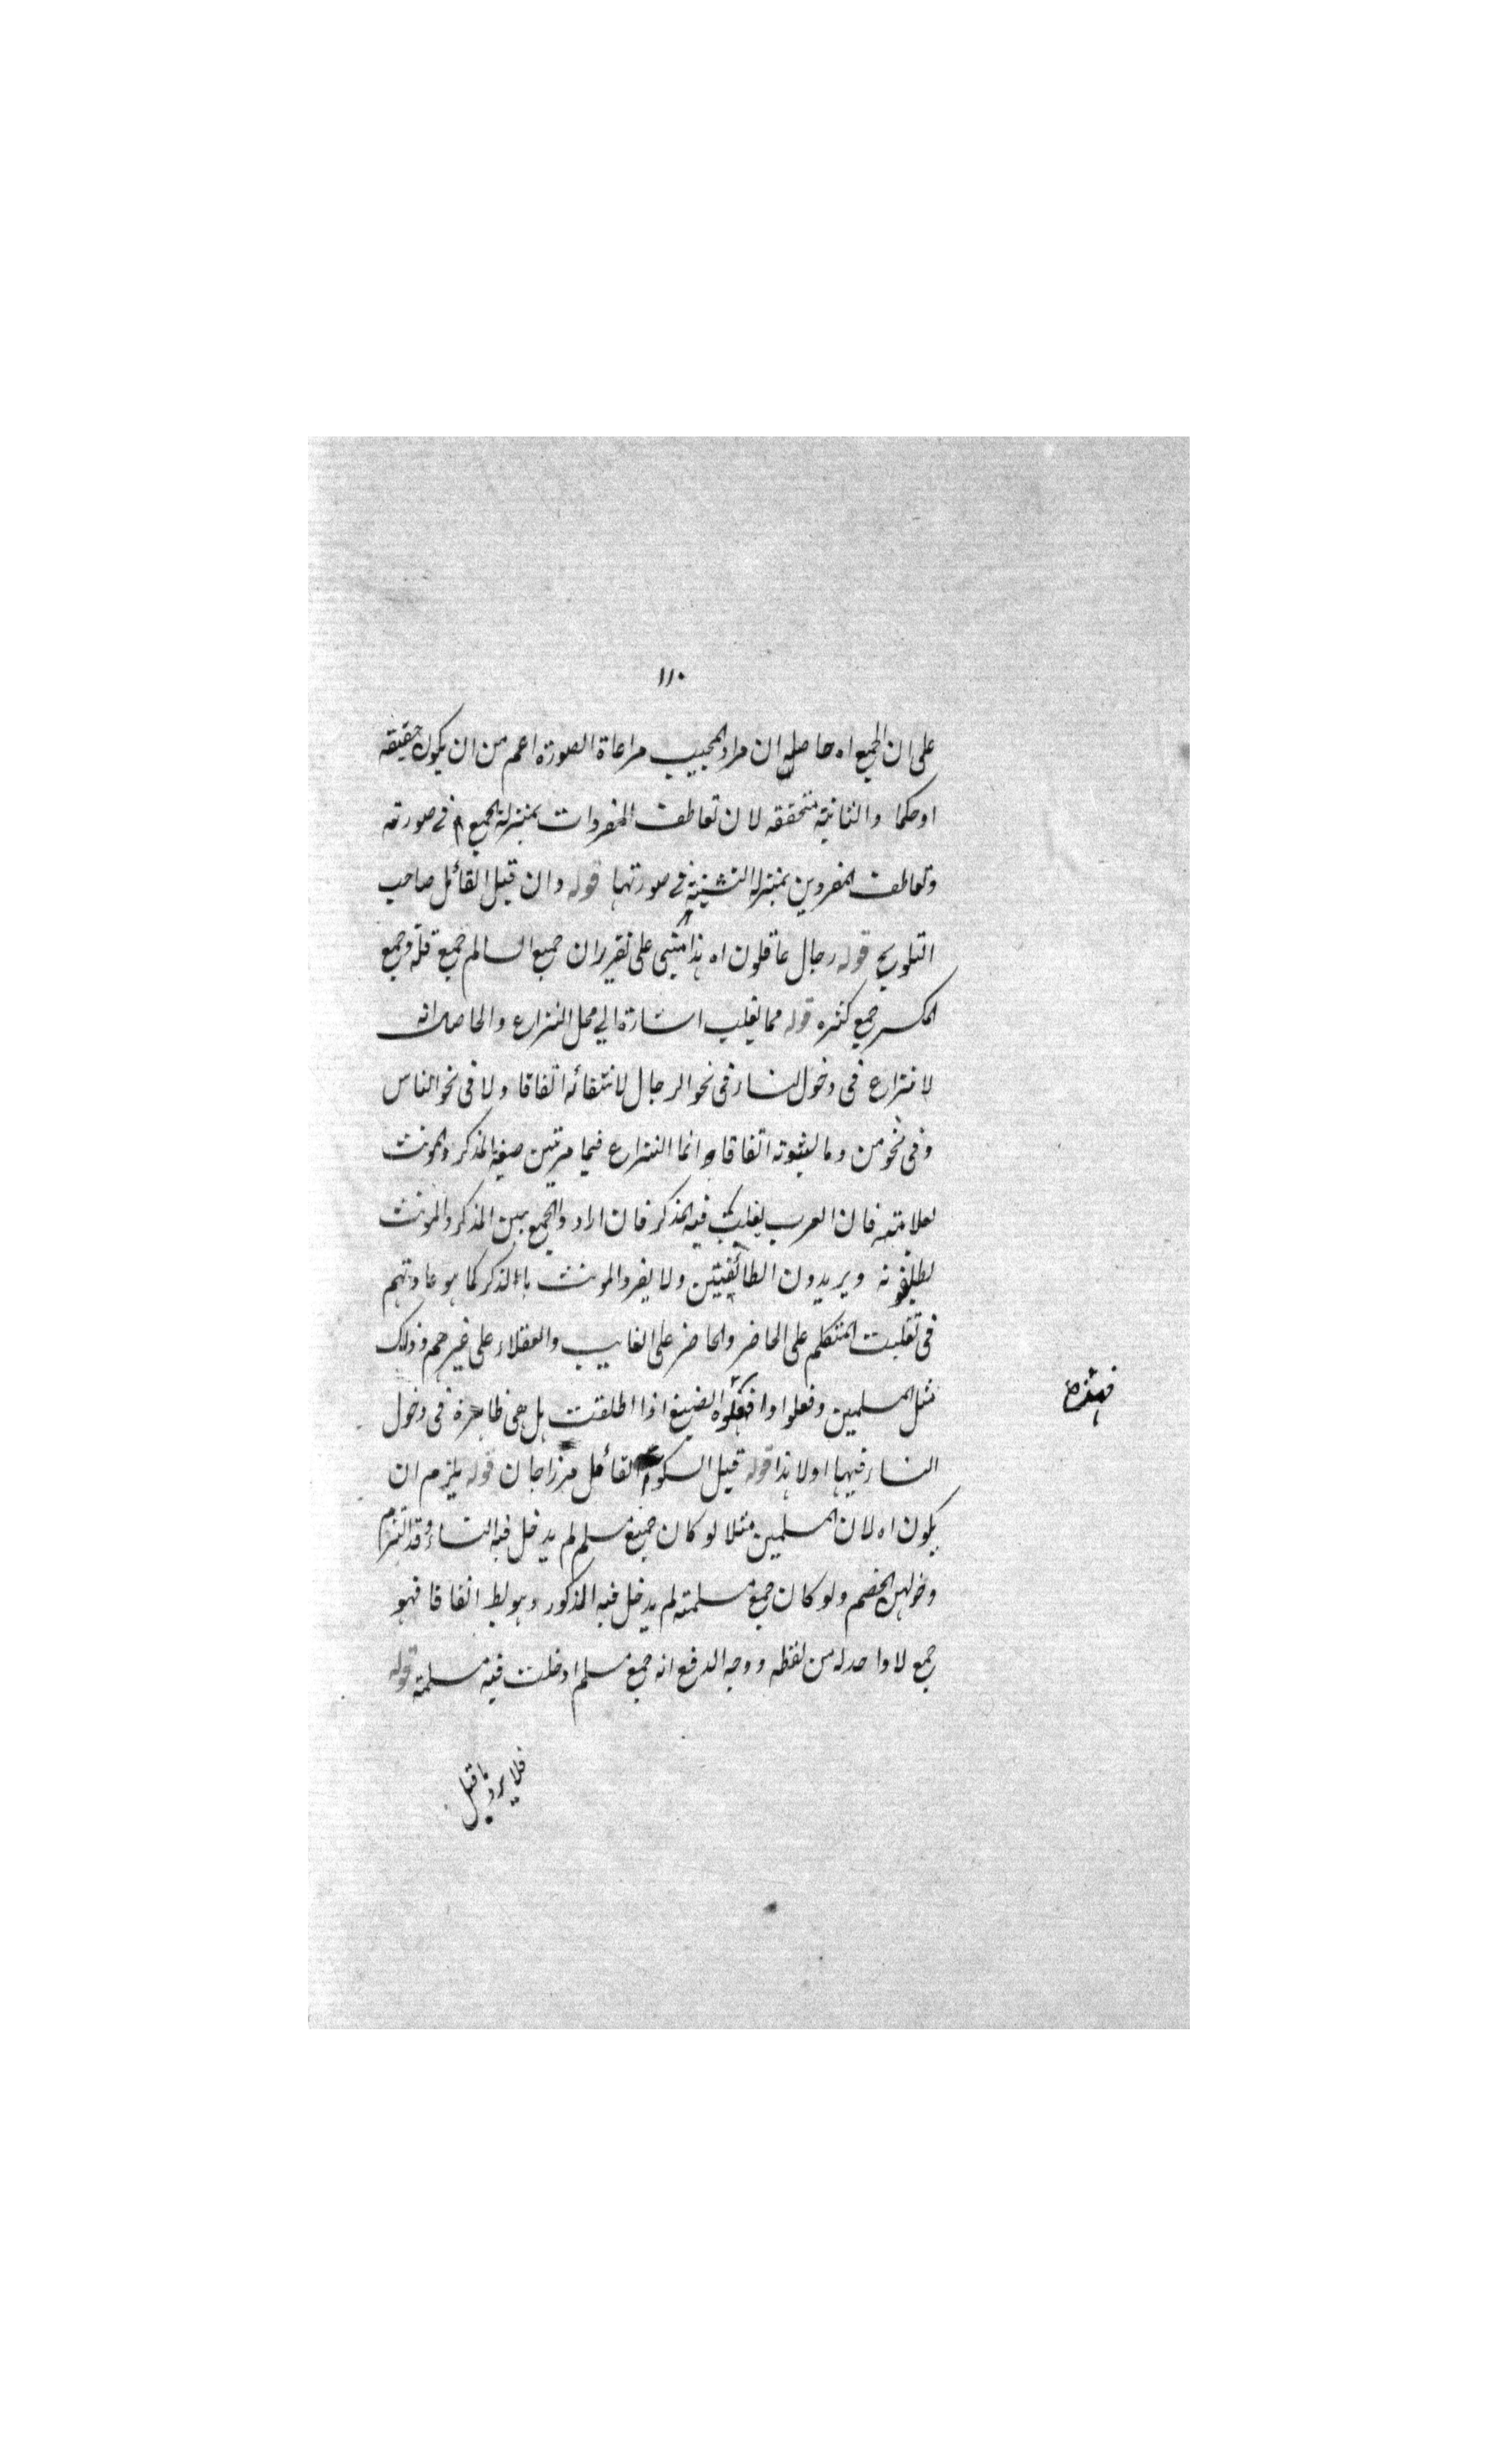 ١١٠
على ان الجمع اه حاصله ان مراد المجيب مراعاة الصورة اعم من ان يكون حقيقة
او حكما والثانية متحققه لان تعاطف المفردات بمنزلة الجمع في صورته
وتعاطف المفردين بمنزلة التثنية في صورتها قوله وان قيل القائل صاحب
التلويح قوله رجال عاقلون اه هذا مبني على تقرير ان جمع السالم جمع قلة وجمع
المكسر جمع كثره قوله مما يغلب اشارة الي محل النزاع والحاصل انه
لا نزاع في دخول النساء في نحو الرجال لانتفائه اتفاقا ولا في نحو الناس
وفي نحو من وما لثبوته اتفاقا و انما النزاع فيما مرتبين صيغة المذكر والمونث
لعلامته فان العرب يغلب فيه المذكر فان ارادوا الجمع بين المذكر والمونث
يطلقونه ويريدون الطائفتين ولا يفرد المونث بالذكر كما هو عادتهم
في تغليب المتكلم على الحاضر والحاضر على الغايب والعقلاء على غيرهم وذلك
مثل المسلمين وفعلوا وافعلوا الصيغ اذا اطلقت هل هي ظاهرة في دخول
فهذه
النساء فيها اولا هذا قوله قيل السكوت القائل ميرزاجان قوله يلزم ان
يكون اه لان المسلمين مثلا لو كان جمع مسلم لم يدخل فيه النساء وقد التزم
دخولهن الخصم ولو كان جمع مسلمة لم يدخل فيه المذكور وهو بط اتفاقا فهو
جمع لا واحد له من لفظه ووجه الدفع انه جمع مسلم ادخلت فيه مسلمة قوله
فلا يرد ما قيل